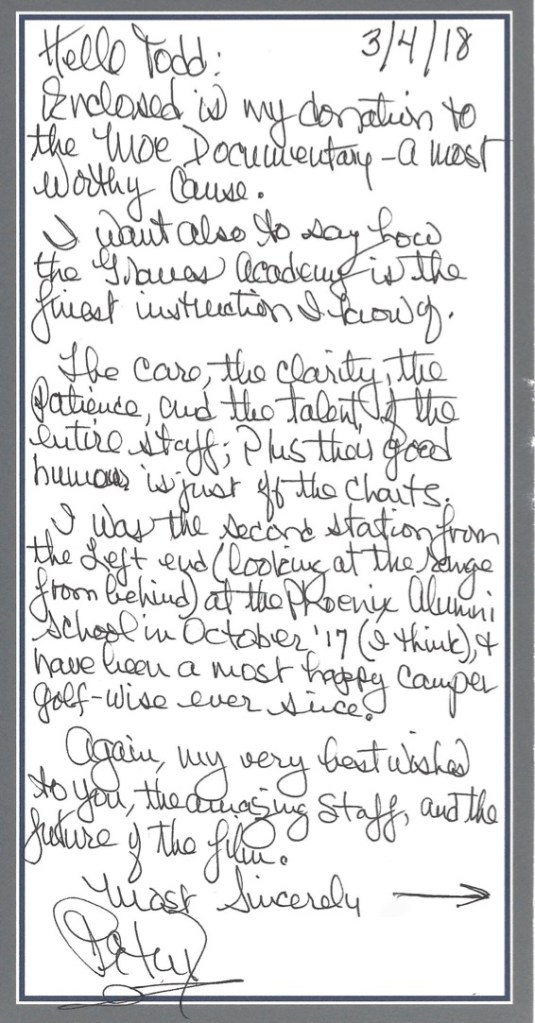 Hello Todd: 3/4/18
Enclosed is my donation to
the Moe Documentary - a most
worthy cause.
I want also to say how
the Graves Academy is the
finest instruction I know of.
The care, the clarity, the
patience, and the talent of the
entire staff; plus their good
humour is just off the charts.
I was the second station from
the left end (looking at the range
from behind) at the Phoenix Alumni
School in October '17 (I think), &
have been a most happy camper
golf-wise ever since.
Again, my very best wishes
to you, the amazing staff, and the
future of the film.
Most Sincerely →